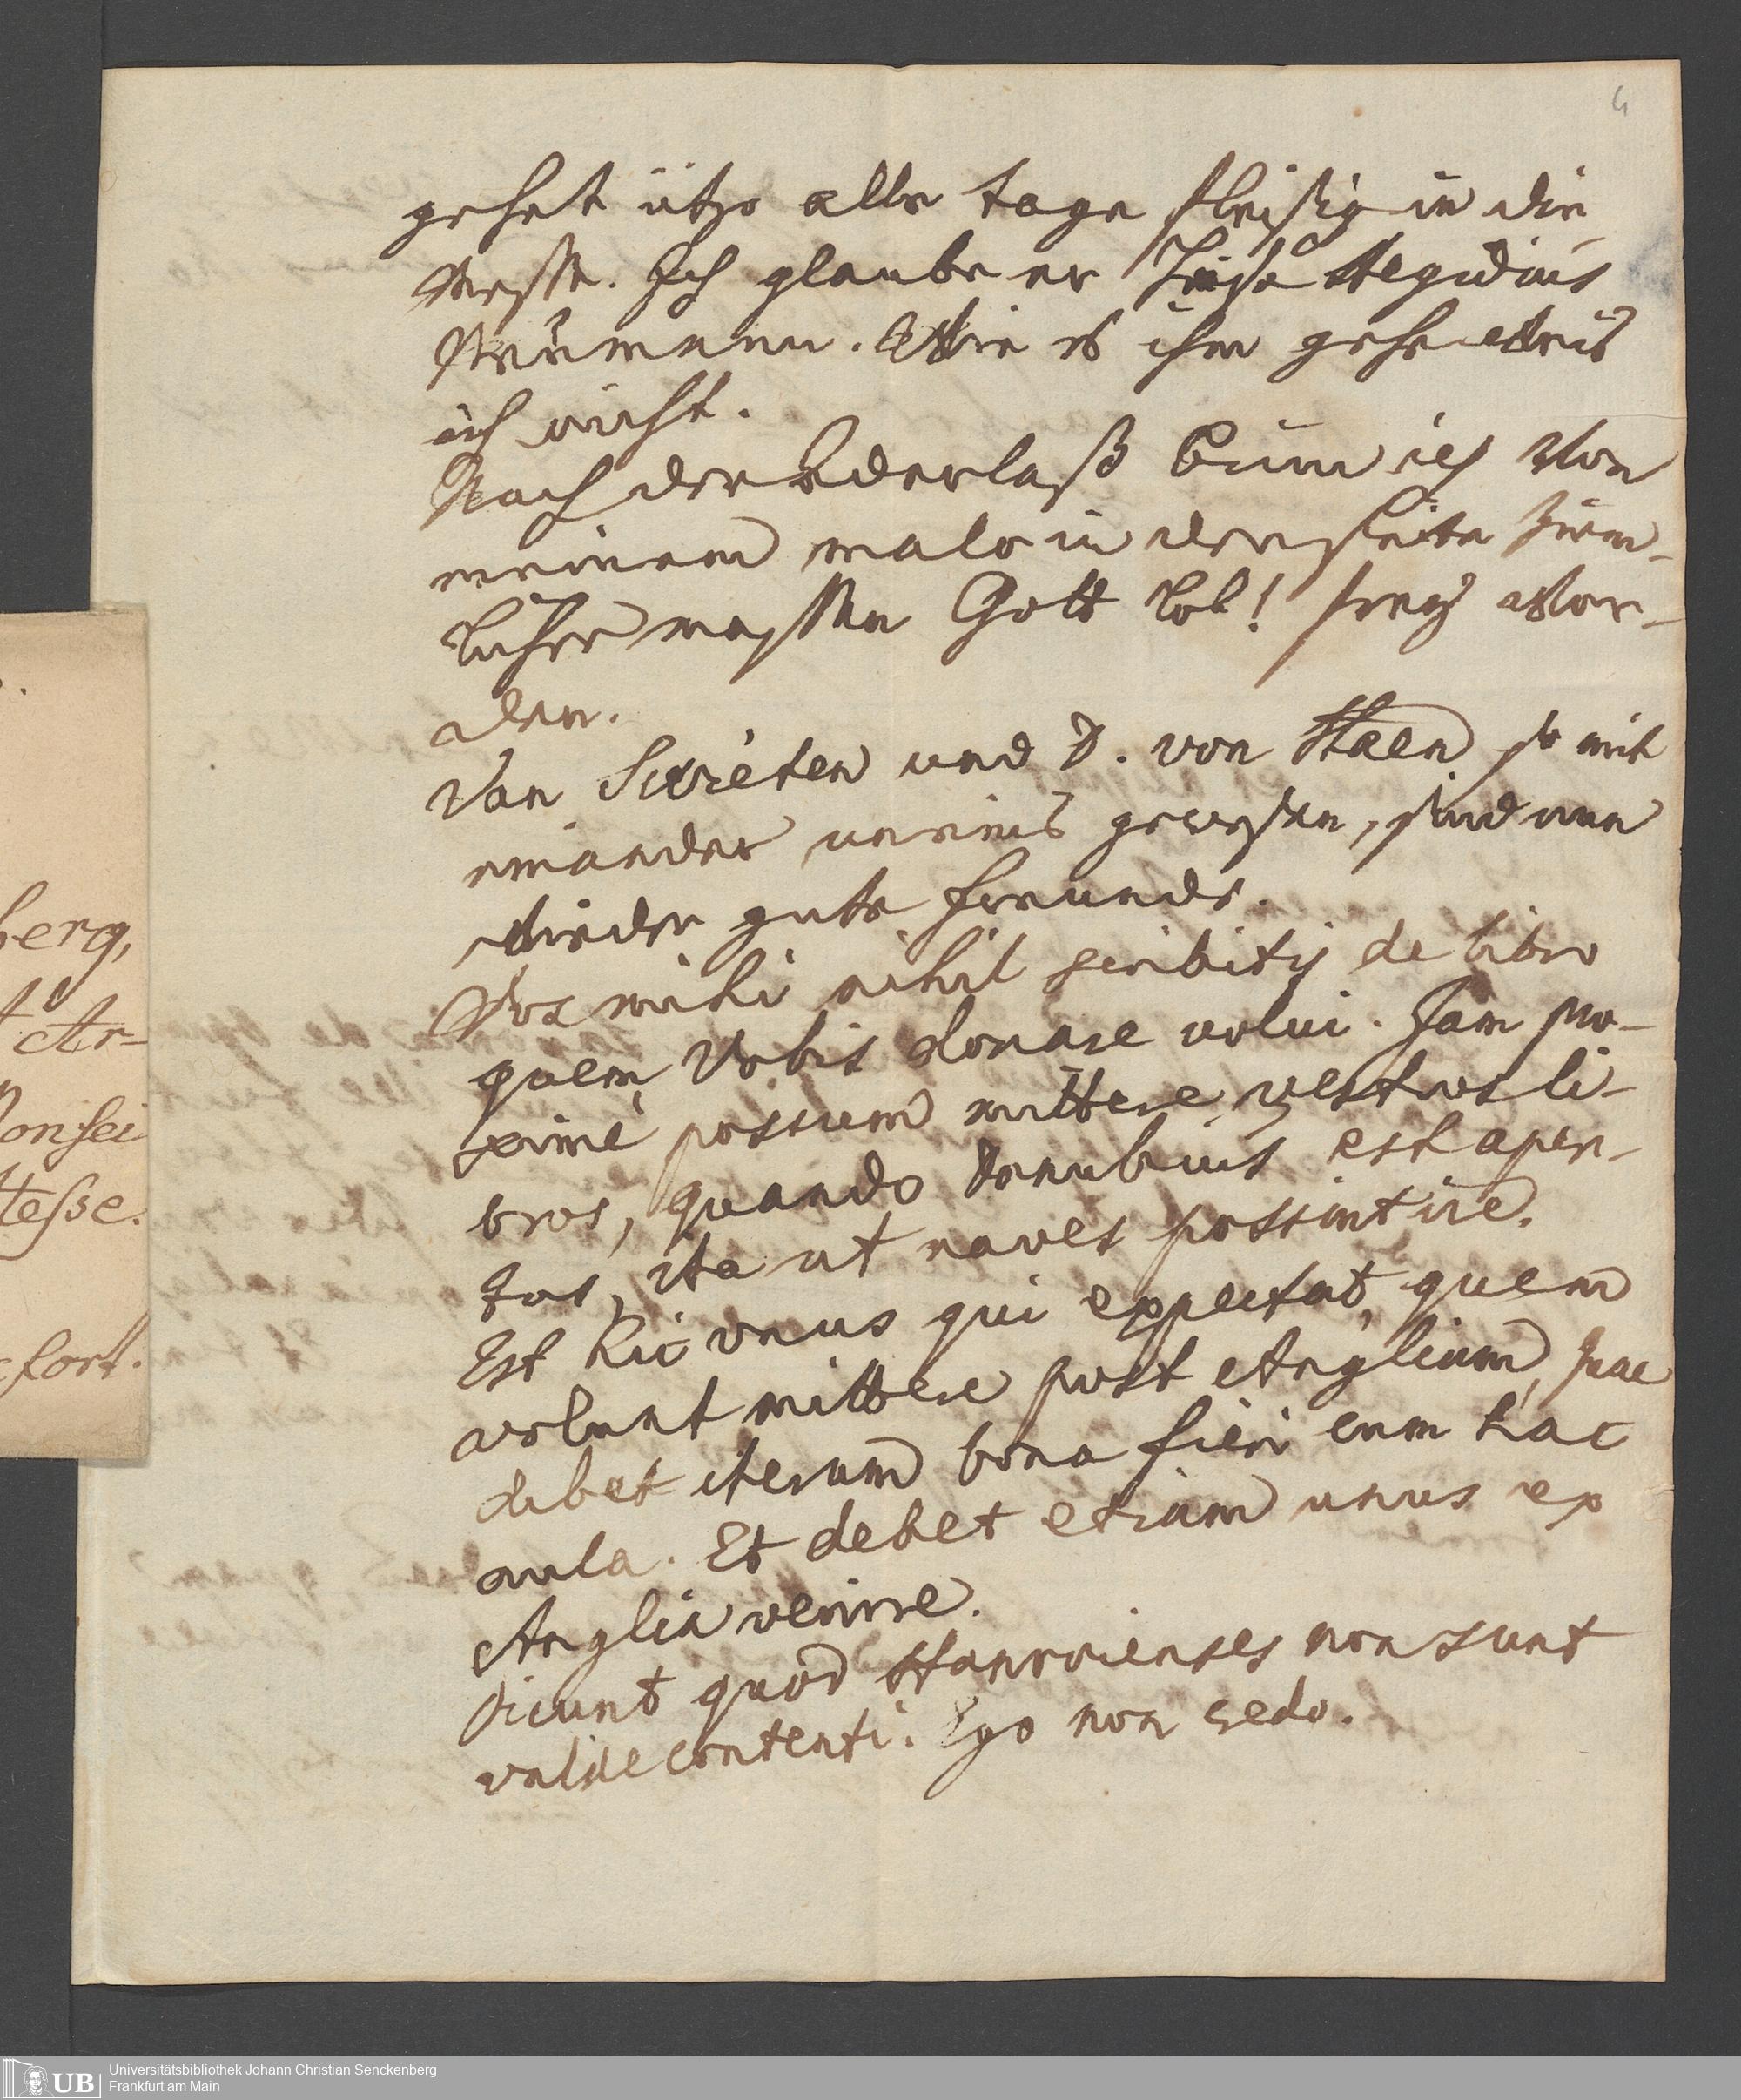 4
gehet itzo alle tage fleißig in die
Messe. Ich glaube er heiße Aegidius
Neumann. Wie es ihm gehe weiß
ich nicht.
Nach der Aderlaß binn ich von
meinem malo in der seite ziem-
licher massen Gott Lob! frey wor-
den.
Van Swieten und D. von Haen so mit
einander uneins gewesen, sind nun
wieder gute freunde.
Vos mihi nihil scribitis de libro
quem Vobis donare volui. Jam pro-
xime possum mittere vestros li-
bros, quando Danubius est aper-
tus, ita ut naves possint ire.
Est hic unus qui expectat, quem
volunt mittere post Angliam, quae
debet iterum bona fieri cum hac
aula. Et debet etiam unus ex
Anglia venire.
Dicunt quod Hannovienses non sunt
valde contenti. Ego non credo.
berg,
t Ar-
Consei
Hesse.
cfort.
UB
Universitätsbibliothek Johann Christian Senckenberg
Frankfurt am Main